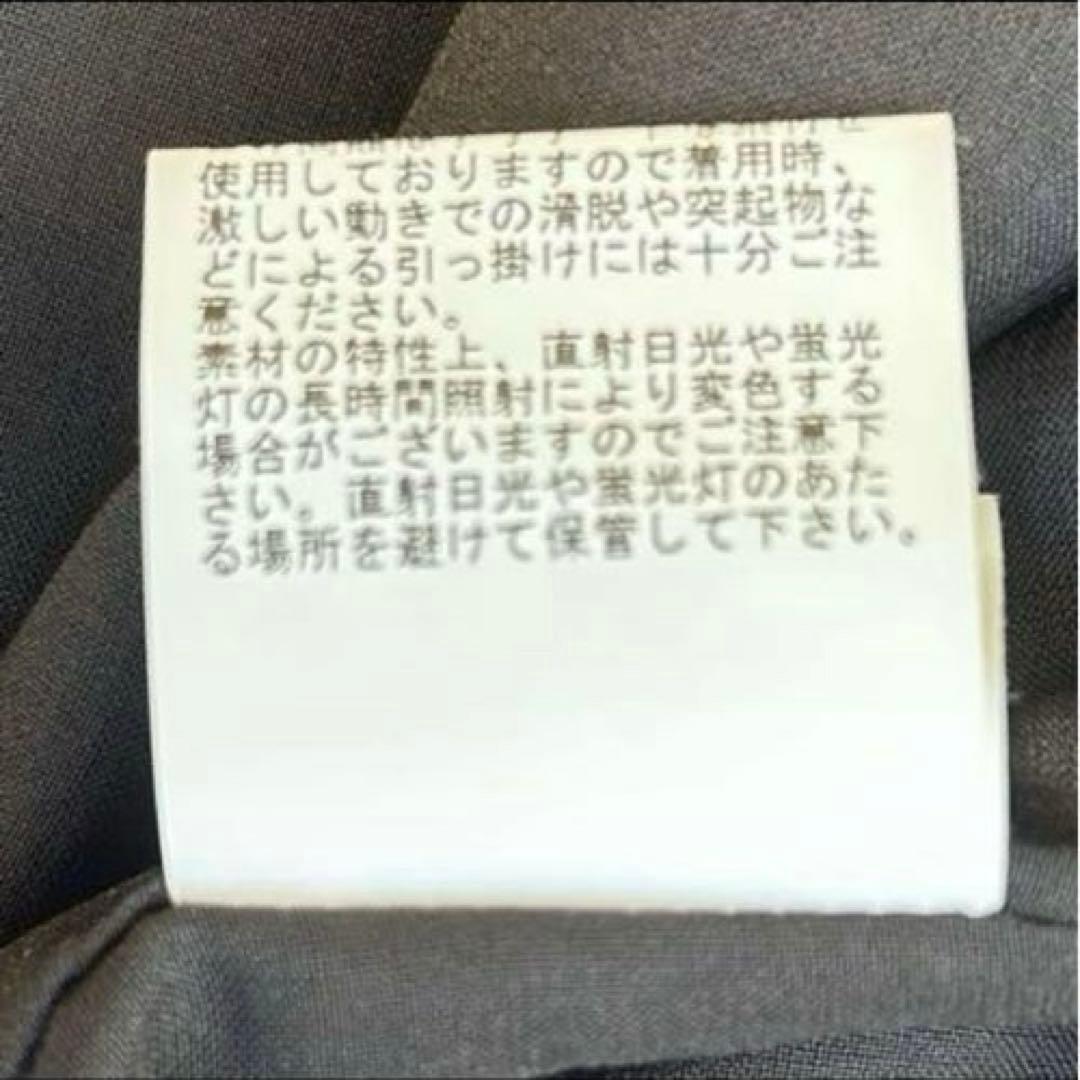 使用しておりますので着用時、
激しい動きでの滑脱や突起物な
どによる引っ掛けには十分ご注
意ください。
素材の特性上、直射日光や蛍光
灯の長時間照射により変色する
場合がございますのでご注意下
さい。直射日光や蛍光灯のあた
る場所を避けて保管して下さい。